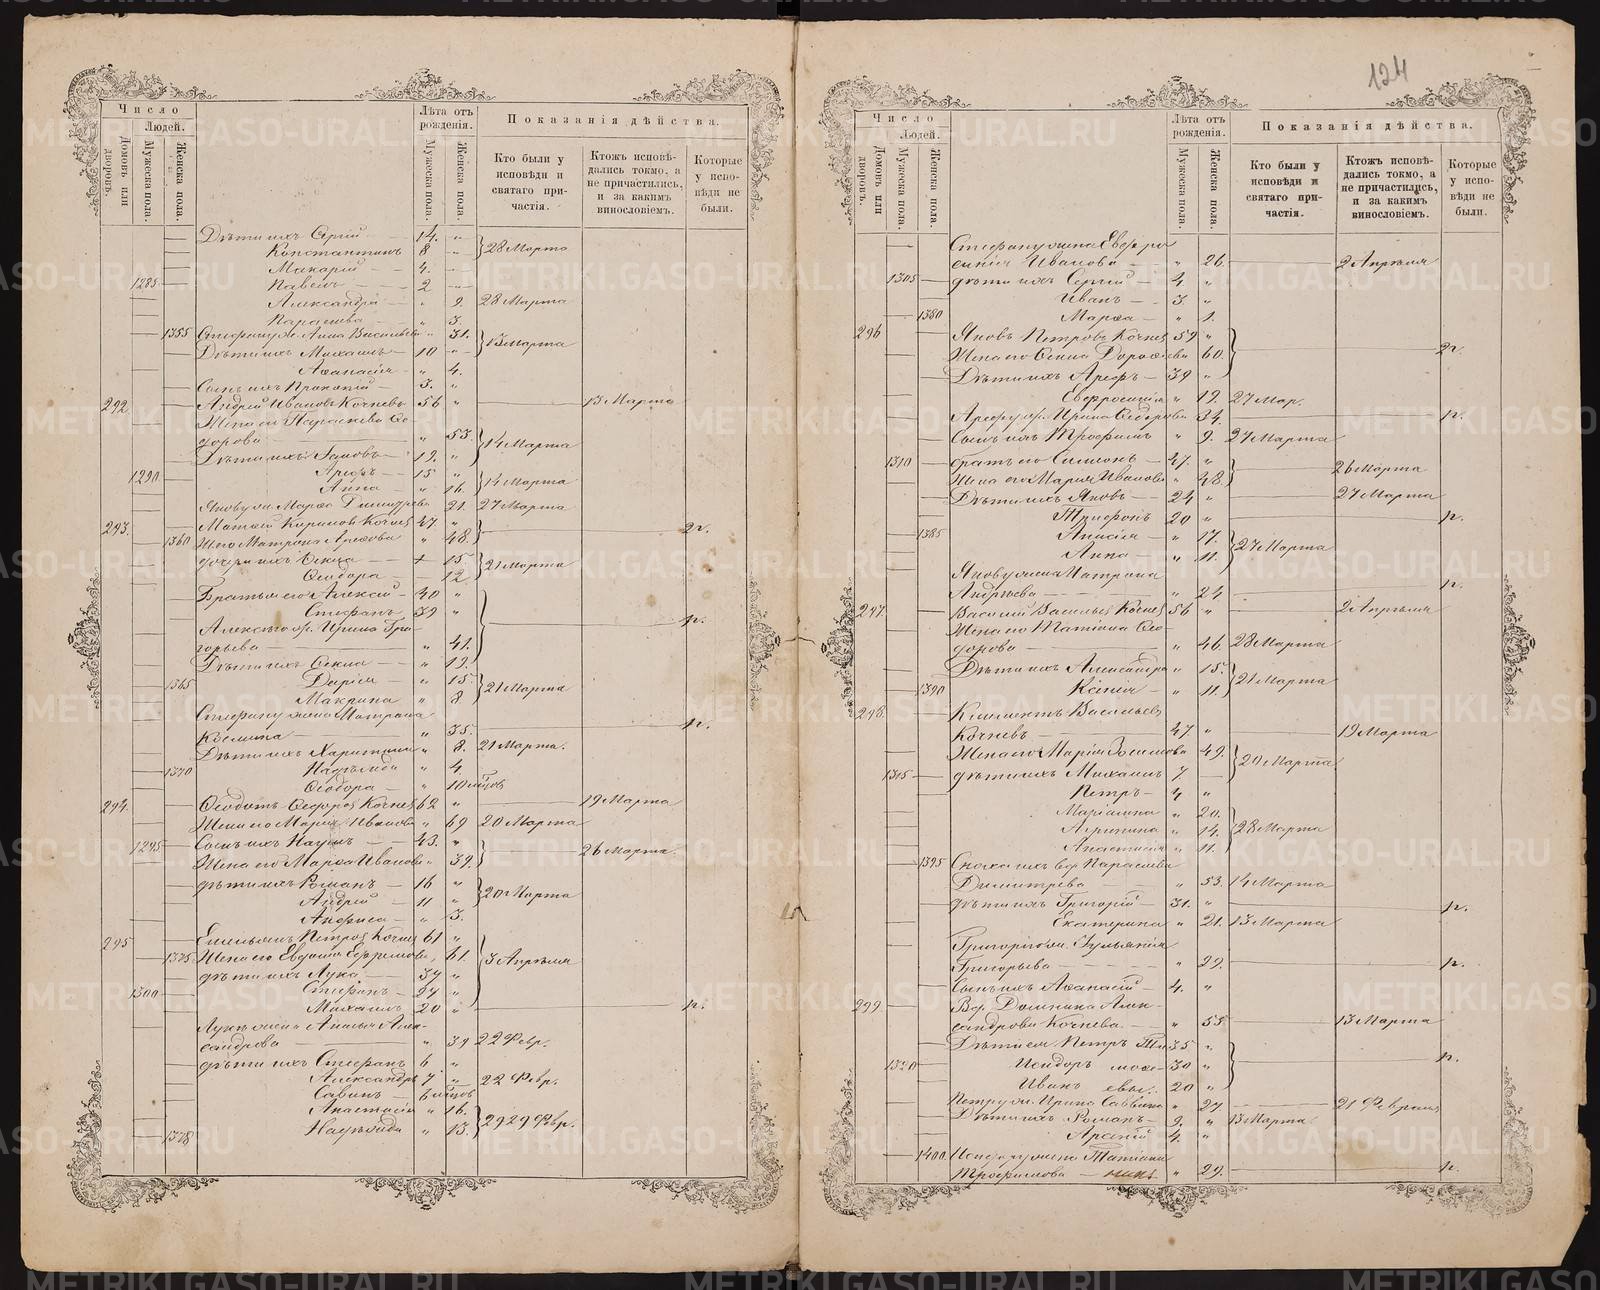 124
Число
Людей.
Домовъ или дворовъ.
Мужеска пола.
Женска пола.
Лѣта отъ рожденія.
Мужеска пола.
Женска пола.
Показанія дѣйства.
Кто были у исповѣди и святаго причастія.
Ктожъ исповѣдались токмо, а не причастились, и за какимъ винословіемъ.
Которые у исповѣди не были.
Дѣти ихъ Сергій 14. „
Константинъ 8 „ 28 Марта
Макарій 4. „
1285 Павелъ 2 „
„ 2. 28 Марта
„ 3.
1355 Анна Васильева „ 31.
Дѣти ихъ Михаилъ 10 „ 13 Марта
Аѳанасія „ 4.
Сынъ ихъ 3. „
292. Андрей Ивановъ Кочневъ 56 „ 13 Марта
Жена его Параскева Ѳе-
дорова „ 53. 14 Марта
Дѣти ихъ 19. „
1290 Арефъ 15 „
Анна „ 16. 14 Марта
Якову ж. Марѳа „ 21. 27 Марта
293. Матвей Кириловъ Кочневъ 47. „
1360 Ж. его Матрона „ 48. 2 г.
дочери ихъ Ѳекла + 15. 21 Марта
Ѳеодора 12
Братья его Алексій 40 „
Стефанъ 39 „
Алексѣю ж. Ирина Гри-
горьева „ 41. г.
Дѣти ихъ Ѳекла „ 19.
1365 Дарія „ 15
Макрина „ 8 21 Марта
Стефану жена Матрона
Космина „ 35. г.
Дѣти ихъ Харитина „ 8. 21 Марта.
1370 Надежда „ 4.
Ѳеодора „ 10
294. Ѳеодотъ Ѳедоровъ Кочневъ 62 „ 19 Марта
Жена его Марія Иванова „ 69 20 Марта
1295 Сынъ ихъ Наумъ 43. „
Жена его Марѳа Иванова „ 39. 26 Марта.
дѣти ихъ Романъ 16 „
Андрей 11 „ 20 Марта
Анфиса „ 3.
295 Емельянъ Петровъ Кочневъ 61 „
1375. Жена его Евдокія Ефремова „ 61. 3 Апрѣля
дѣти ихъ Лука 34 „
1300 Стефанъ 24 „
Михаилъ 20 „ г.
Лукѣ жена Апалья Алек-
сандрова „ 34 22 Февр.
дѣти ихъ Стефанъ 6 „
Александръ 7 „ 22 Февр.
Савинъ 6
Анастасія „ 16.
1378 Надежда „ 13. 29 Февр.
Число
Людей.
Домовъ или дворовъ.
Мужеска пола.
Женска пола.
Лѣта отъ рожденія.
Мужеска пола.
Женска пола.
Показанія дѣйства.
Кто были у исповѣди и святаго причастія.
Ктожъ исповѣдались токмо, а не причастились, и за какимъ винословіемъ.
Которые у исповѣди не были.
Стефану жена Евфро-
синія Иванова „ 26. 2 Апрѣля
1305 дѣти ихъ Сергій 4 „
Иванъ 3. „
1380 Марѳа „ 1.
296 Яковъ Петровъ Кочневъ 59 „
Жена его Ѳекла „ 60. 2 г.
Дѣти ихъ Арефъ 39 „
Евфросинія „ 19. 27 Мар.
Арефу ж. Ирина Ѳедорова 34. г.
Сынъ ихъ Трофимъ „ 9. 27 Марта
1310 братъ его Симеонъ 47. „ 26 Марта
Жена его Марія Иванова „ 48.
Дѣти ихъ Яковъ 24 „ 27 Марта
Трифонъ 20 „ г.
1385 Анисія „ 17. 27 Марта
Анна „ 11.
Якову жена Матрона
Андреева „ 24 г.
297. Василій Васильевъ Кочневъ 56 „ 2 Апрѣля
Жена его Татіана Ѳео-
дорова „ 46. 28 Марта
Дѣти ихъ Александра „ 15. 21 Марта
1390 Ксенія „ 11.
298. Климентъ Васильевъ
Кочневъ 47. „ 19 Марта
Жена его Марія Зосимова „ 49. 20 Марта
1315 дѣти ихъ Михаилъ 7.
Петръ 4 „
Маріамна „ 20.
Агрипина „ 14. 28 Марта
Анастасія „ 11.
1395 вд. Параскева
Димитрева „ 53. 14 Марта
дѣти ихъ Григорій 31. „ г.
Екатерина „ 21. 13 Марта
Григорію ж. Гульянія
Григорьева „ 29. г.
Сынъ ихъ Аѳанасій 4. „
299 Вд. Домника Алек-
сандрова Кочнева „ 55. 13 Марта
Дѣти ея Петръ 35 „
1320 Исидоръ 30 „ г.
Иванъ 20 „
Петру ж. Ирина Саввина „ 27 21 Февраля
Дѣти ихъ Романъ 9. „ 13 Марта
Арсеній 4. „
1400 Исидору жена Татіана
Трофимова „ 29. г.
METRIKI.GASO-URAL.RU